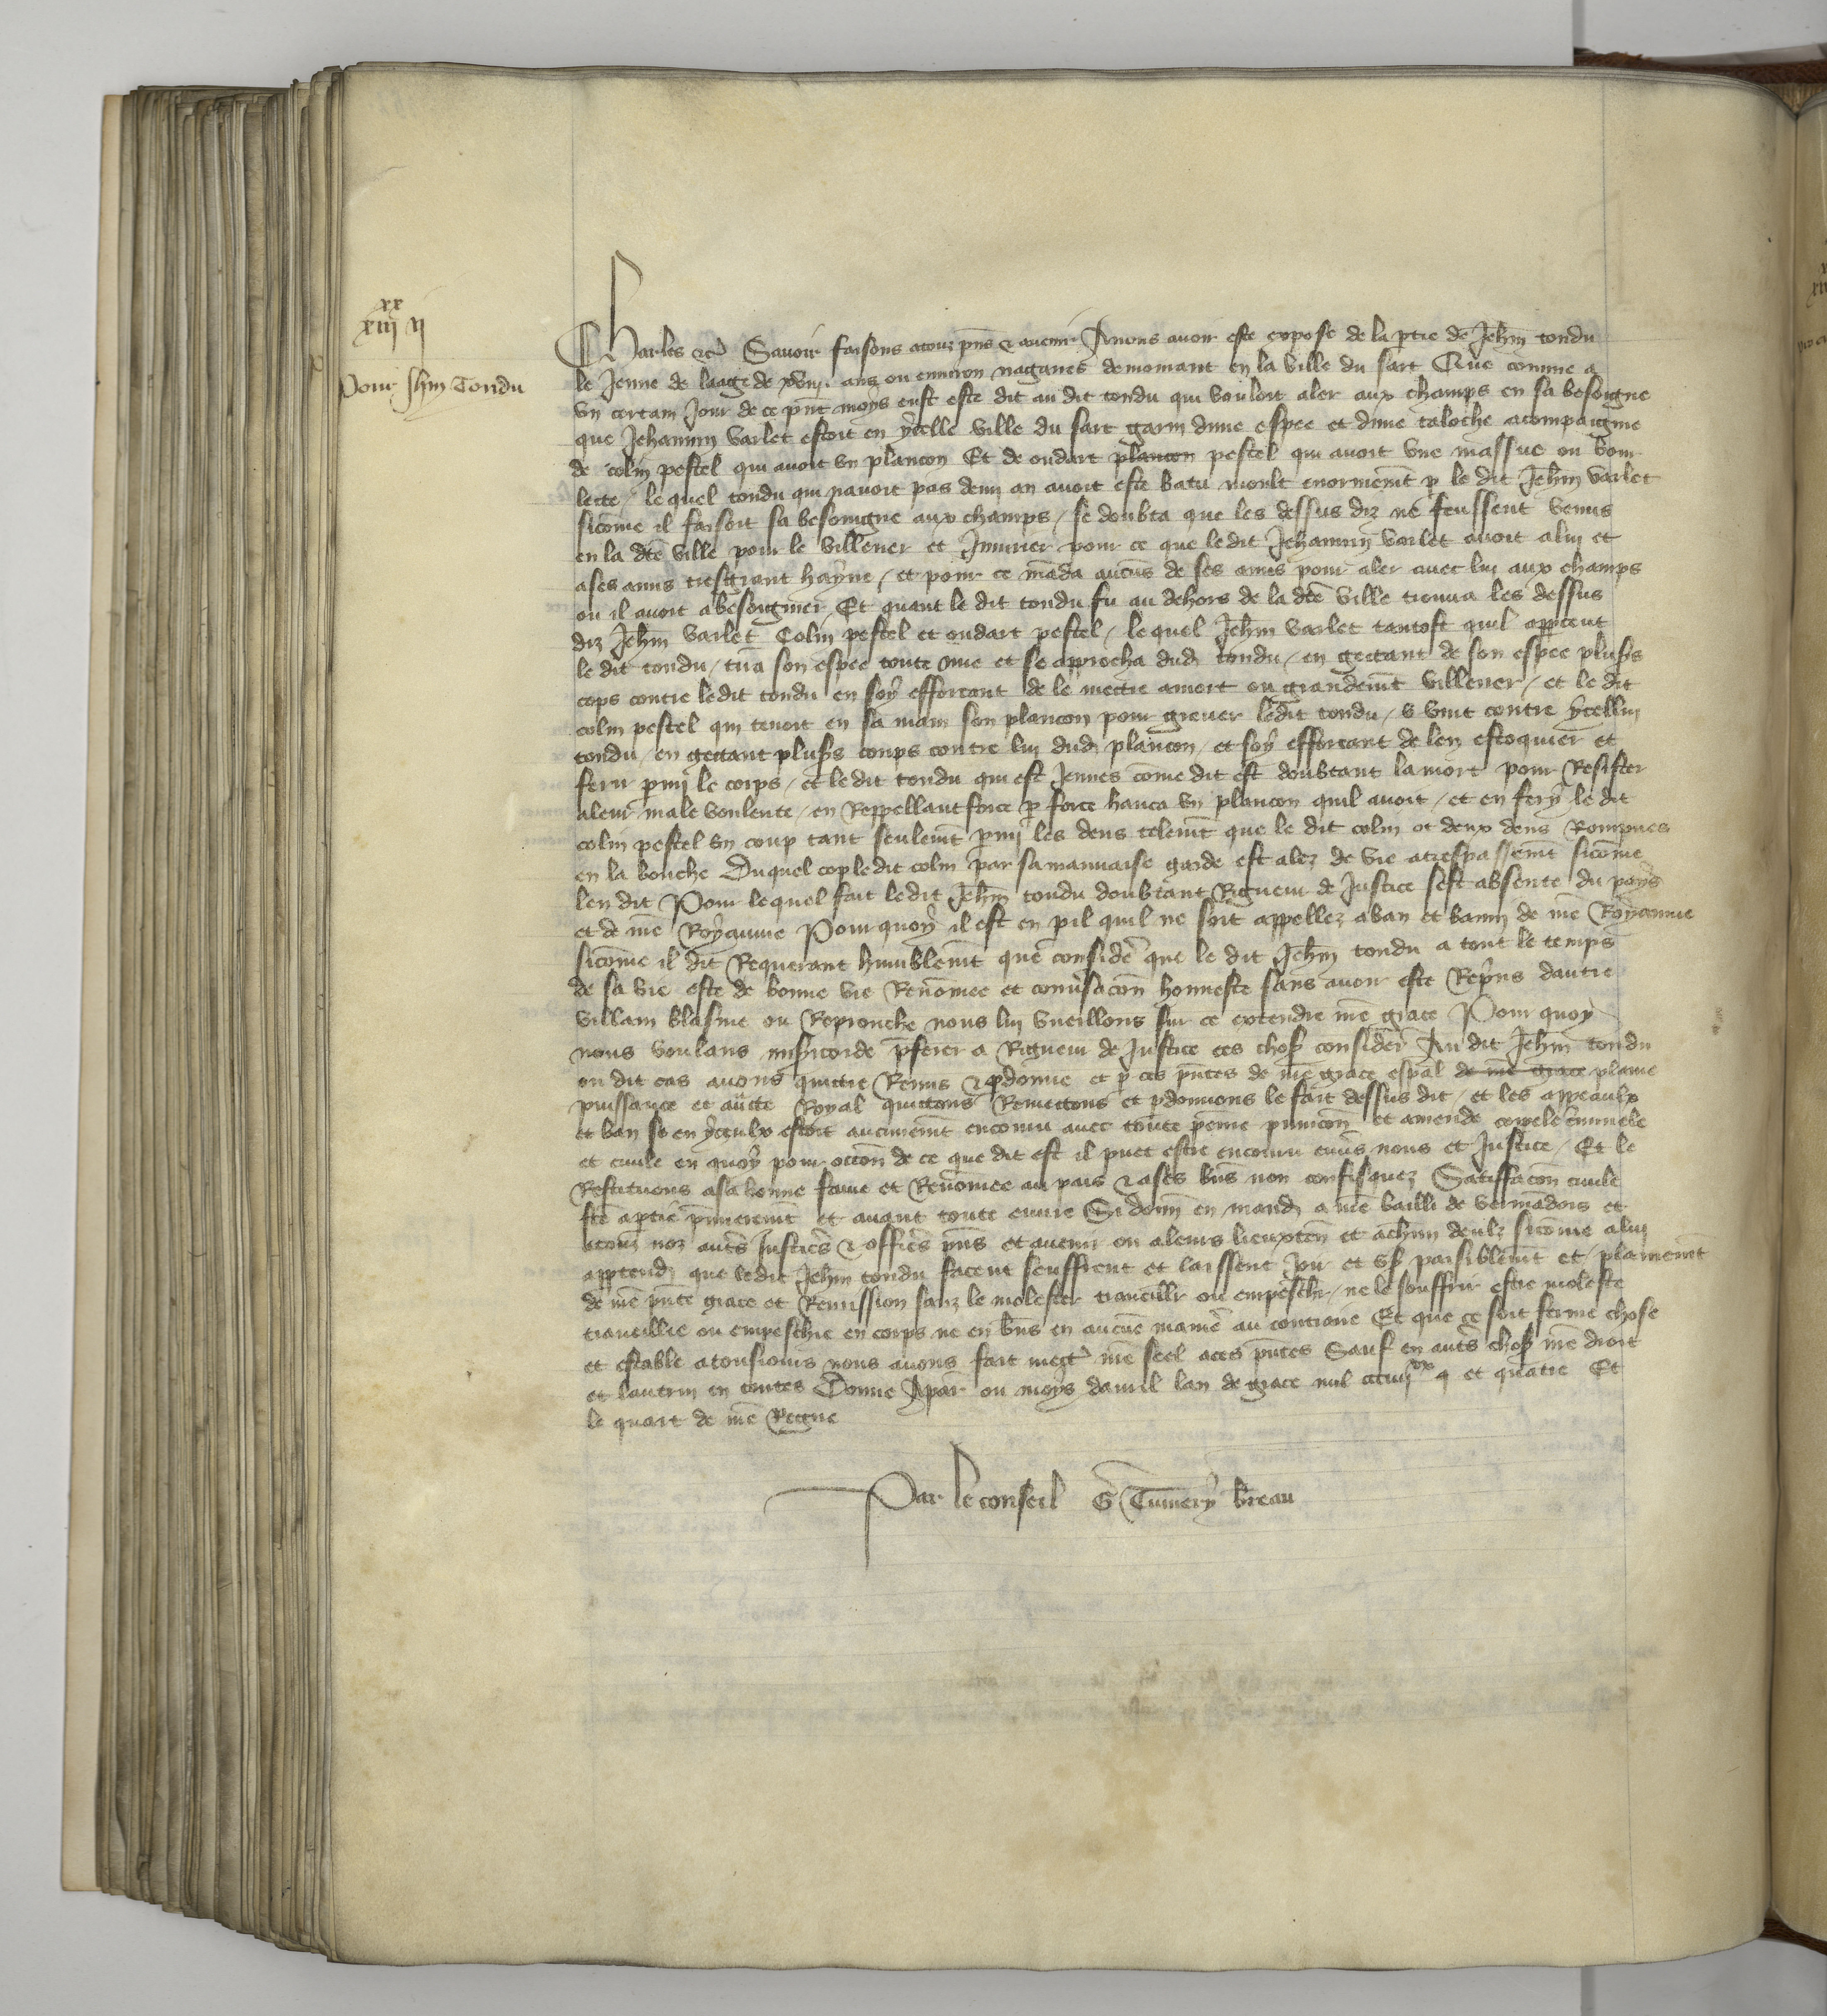 xx
xiiij ij
Pour Jhm Tondu
Charles etc Savoir faisons a touz pns et avenir A nous avoir este expose de la ptie de Jehm tondu
le Jenne de laage de xviij ans ou environ naganes demorant en la ville du sart Que comme a
un certain Jour de ce pnt moys eust este dit au dit tondu qui vouloit aler aux champs en sa besoigne
que Jehannin varlet estoit en ycelle ville du sart garni dune espee et dune taloche acompaignie
de colin pestel qui avoit un plancon Et de oudart plancon pestel qui avoit une massue ou bou
lecte / le quel tondu qui navoit pas demi an avoit este batu moult enormemt p le dit Jehm varlet
sicome il faisoit sa besoingne aux champs / se doubta que les dessus diz ne feussent venus
en la dte ville pour le villener et Iniurier pour ce que le dit Jehannin varlet avoit a lui et
a ses amis tresgrant hayne / et pour ce mada aucuns de ses amis pour aler avec lui aux champs
ou il avoit a besoigner Et quant le dit tondu fu au dehors de la dte ville trouva les dessus
diz Jehm varlet Colin pestel et oudart pestel / le quel Jehm varlet tantost quil appceut
le dit tondu / tira son espee toute nue et se approcha dud tondu / en gectant de son espee plusrs
cops contre ledit tondu en soy efforcant de le mectre a mort ou grandemt villener / et le dit
colin pestel qui tenoit en sa main son plancon pour grever ledit tondu / s vint contre ycellui
tondu / en gectant plusrs coups contre lui dud plancon / et soy efforcant de len estoquier et
ferir pmi le corps / et le dit tondu qui est Jennes come dit est doubtant la mort pour Resister
a leur male voulente / en Reppellant force p force hauca un plancon quil avoit / et en fery le dit
colin pestel un coup tant seulemt pmi les dens telemt que le dit colin ot deux dens Rompues
en la bouche Du quel cop le dit colin par sa mauvaise garde est alez de vie a trespassemt sicome
len dit Pour le quel fait le dit Jehm tondu doubtant Rigueur de Justice sest absente du pays
et de nre Royaume Pour quoy il est en pil quil ne soit appellez a ban et banni de nre Royaume
sicome il dit Requerant humblemt que considere que le dit Jehm tondu a tout le temps
de sa vie este de bonne vie Renomee et conversacon honneste sans avoir este Reprins dautre
villain blasme ou Reprouche nous lui vueillons sur ce extendre nre grace Pour quoy
nous voulans misicorde pferer a Rigueur de Justice ces chos consider Au dit Jehm tondu
ou dit cas avons quictie Remis et pdonne et p ces pntes de nre grace espal de nre grace plaine
puissance et aucte Royal quictons Remectons et pdonnons le fait dessus dit / et les appeaulx
et ban se en yceulx estoit aucunemt encouru avec toute peine punicon et amende corpele criminele
et civile en quoy pour occon de ce que dit est il puet estre encouru envs nous et Justice / Et le
Restituons a sa bonne fame et Renomee au pais et a ses bns non confisquez Satisfacon civile
fte a ptie pmieremt et avant toute euvre Si donn en mand a nre bailli de vermadois et
a touz noz autrs Justicrs et officrs pns et avenir ou a leurs lieuxten et a chun deulz sicome a lui
apptend que ledit Jehm tondu facent seuffrent et laissent Joir et us paisiblemt et plainemt
de nre pnte grace et Remission sanz le molester travaillr ou empeschr / ne le souffrir estre moleste
travaillie ou empeschie en corps ne en bns en aucue maniere au contraire Et que ce soit ferme chose
et estable a tousiours nous avons fait mectr nre seel a ces pntes Sauf en autrs chos nre droit
et lautrui en toutes Donne A par ou moys davril lan de grace mil ccc iiijxx et quatre Et
le quart de nre Regne
Par le conseil